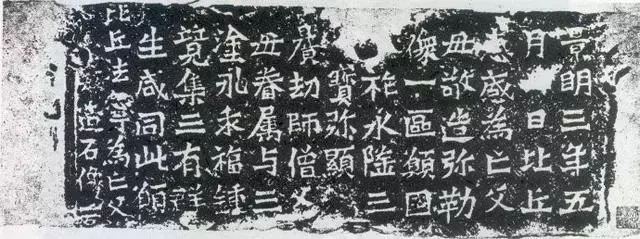 景明三年五
月日比丘
惠感為亡父
母敬造弥勒
像一區願國
祚永隆三
寳弥顯
曠劫師僧父
母眷属与三
塗永乖福鍾
竟集三有群
生咸同此願
比丘法寧為亡父
造石像一